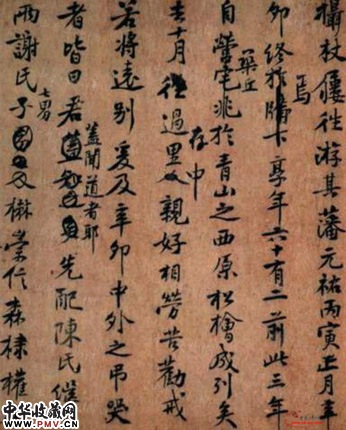 攝杖屨往游其藩元祐丙寅正月辛
焉
卯終於牖下享年六十有二前此三年
築丘
自營宅兆於青山之西原松檜成列矣
存中
去十月往過里人親好相勞苦勸戒
若將遠別爰及辛卯中外之弔哭
蓋聞道者耶
者皆曰君先配陳氏繼
七男
兩謝氏子及楙崇仁森棣權
中华收藏网
WWW.PMV.CN